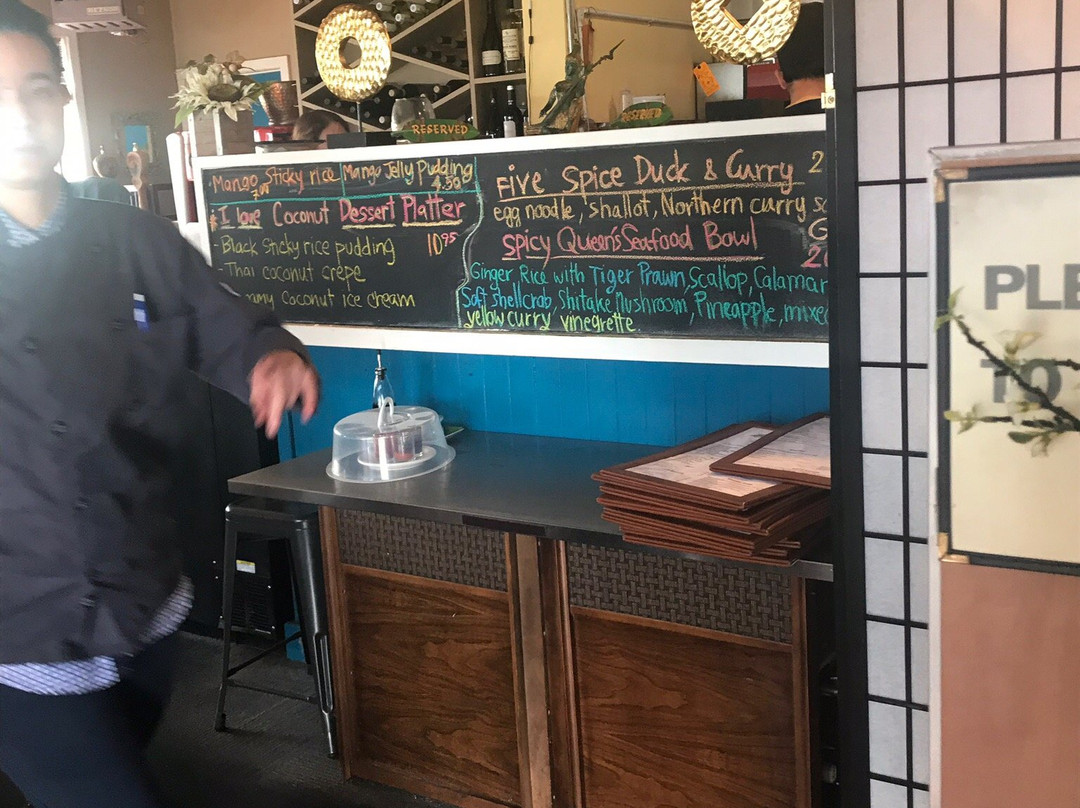 RESERVED
Mango Sticky rice
Mango Jelly Pudding
4.50
I love Coconut Dessert Platter
- Black sticky rice pudding 10 95
- Thai coconut crepe
coconut ice cream
Five Spice Duck & Curry 2
egg noodle, shallot, Northern curry
Spicy Queen's Seafood Bowl
Ginger Rice with Tiger Prawn, Scallop, Calamar
Soft shellcrab, Shitake Mushroom, Pineapple, mixed
yellow curry vinegrette
PLE
TO